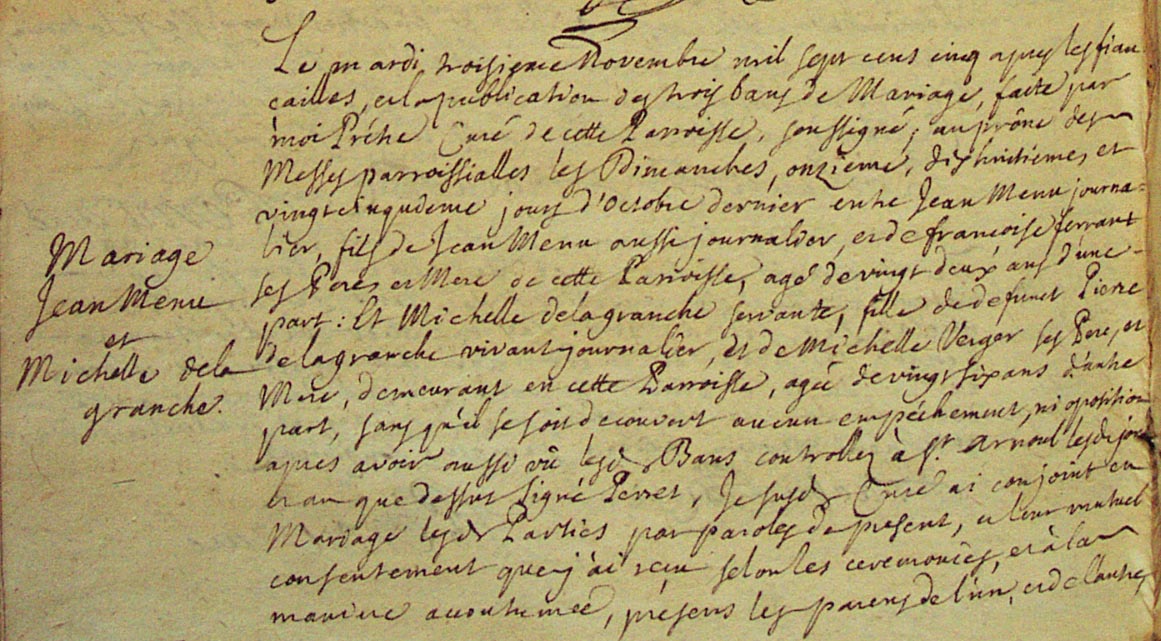 Le mardi troisieme Novembre mil sept cens cinq apres les fian
cailles, et la publication des trois bans de Mariage, faite par
moi Prêtre Curé de cette Parroisse, soussigné, au prône des
Messes parroissialles les Dimanches, onzieme, dixhuitieme, et
vingtcinquieme jours d'Octobre dernier entre Jean Menu journa-
lier, fils de Jean Menu aussi journalier, et de francoise ferrant
ses Pere, et Mere de cette Parroisse, agé de vingt deux ans d'une
part : Et Michelle delagranche servante, fille de defunct Pierre
delagranche vivant journalier, et de Michelle Verger ses Pere, et
Mere, demeurant en cette Parroisse, agée de vingt six ans d'autre
part, sans qu'il se soit decouvert aucun empéchement, ni oposition
apres avoir aussi vû lesd. Bans controllez à St. Arnoul lesd. jour
et an que dessus signé Perret, Je susd. Curé ai conjoint en
Mariage lesd. Parties par paroles de present, et leur mutuel
consentement que j'ai reçu selon les ceremonies, et à la
maniere accoutumée, présens les parens de l'un, et de l'autre,
Mariage
Jean Menu
et
Michelle dela
granche.